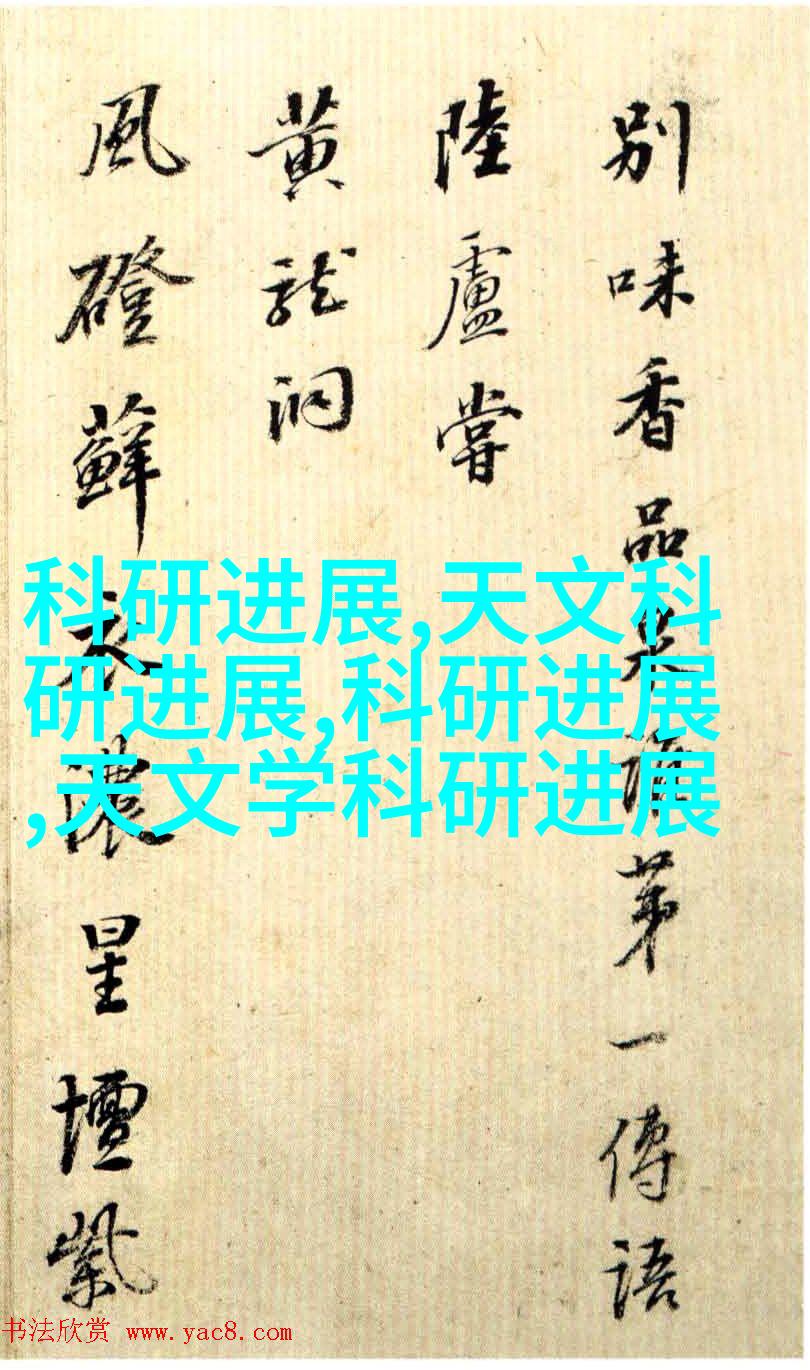 别味香品泉擬苐一傳語
陸盧嘗
黄龍洞
風磴蘚衣濃星壇紫
科研进展,天文科
研进展,科研进展
,天文学科研进展
书法欣赏 www.yac8.com